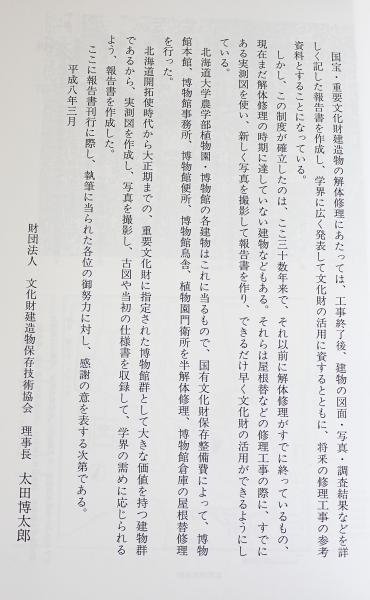 国宝・重要文化財建造物の解体修理にあたっては、工事終了後、建物の図面・写真・調査結果などを詳
しく記した報告書を作成し、学界に広く発表して文化財の活用に資するとともに、将来の修理工事の参考
資料とすることになっている。
しかし、この制度が確立したのは、ここ三十数年来で、それ以前に解体修理がすでに終っているもの、
現在まだ解体修理の時期に達していない建物などもある。それらは屋根替などの修理工事の際に、すでに
ある実測図を使い、新しく写真を撮影して報告書を作り、できるだけ早く文化財の活用ができるようにし
ている。
北海道大学農学部植物園・博物館の各建物はこれに当るもので、国有文化財保存整備費によって、博物
館本館、博物館事務所、博物館便所、博物館鳥舎、植物園門衛所を半解体修理、博物館倉庫の屋根替修理
を行った。
北海道開拓使時代から大正期までの、重要文化財に指定された博物館群として大きな価値を持つ建物群
であるから、実測図を作成し、写真を撮影し、古図や当初の仕様書を収録して、学界の需めに応じられる
よう、報告書を作成した。
ここに報告書刊行に際し、執筆に当られた各位の御努力に対し、感謝の意を表する次第である。
平成八年三月
財団法人 文化財建造物保存技術協会 理事長 太田博太郎